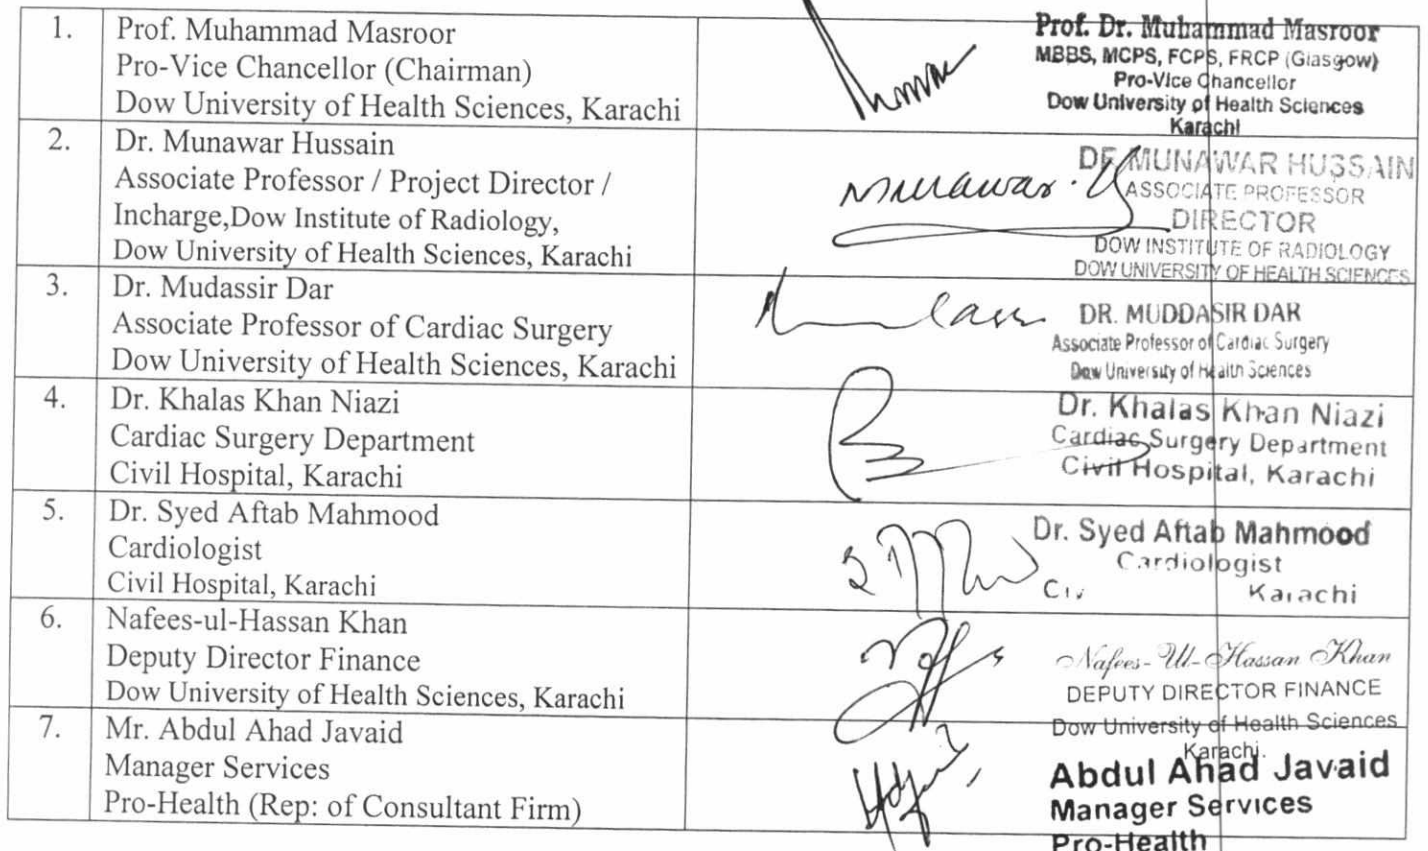 1.
Prof. Muhammad Masroor
Pro-Vice Chancellor (Chairman)
Dow University of Health Sciences, Karachi
Prof. Dr. Muhammad Masroor
MBBS, MCPS, FCPS, FRCP (Glasgow)
Pro-Vice Chancellor
Dow University of Health Sciences
Karachi
2.
Dr. Munawar Hussain
Associate Professor / Project Director /
Incharge,Dow Institute of Radiology,
Dow University of Health Sciences, Karachi
Munawar.
MUNAWAR HUSSAIN
ASSOCIATE PROFESSOR
DIRECTOR
DOW INSTITUTE OF RADIOLOGY
DOW UNIVERSITY OF HEALTH SCIENCES
3.
Dr. Mudassir Dar
Associate Professor of Cardiac Surgery
Dow University of Health Sciences, Karachi
DR. MUDDASIR DAR
Associate Professor of Cardiac Surgery
Dow University of Health Sciences
4.
Dr. Khalas Khan Niazi
Cardiac Surgery Department
Civil Hospital, Karachi
Dr. Khalas Khan Niazi
Cardiac Surgery Department
Civil Hospital, Karachi
5.
Dr. Syed Aftab Mahmood
Cardiologist
Civil Hospital, Karachi
Dr. Syed Aftab Mahmood
Cardiologist
Karachi
6.
Nafees-ul-Hassan Khan
Deputy Director Finance
Dow University of Health Sciences, Karachi
Nafees-Ul-Hassan Khan
DEPUTY DIRECTOR FINANCE
Dow University of Health Sciences
Karachi.
7.
Mr. Abdul Ahad Javaid
Manager Services
Pro-Health (Rep: of Consultant Firm)
Abdul Ahad Javaid
Manager Services
Pro-Health